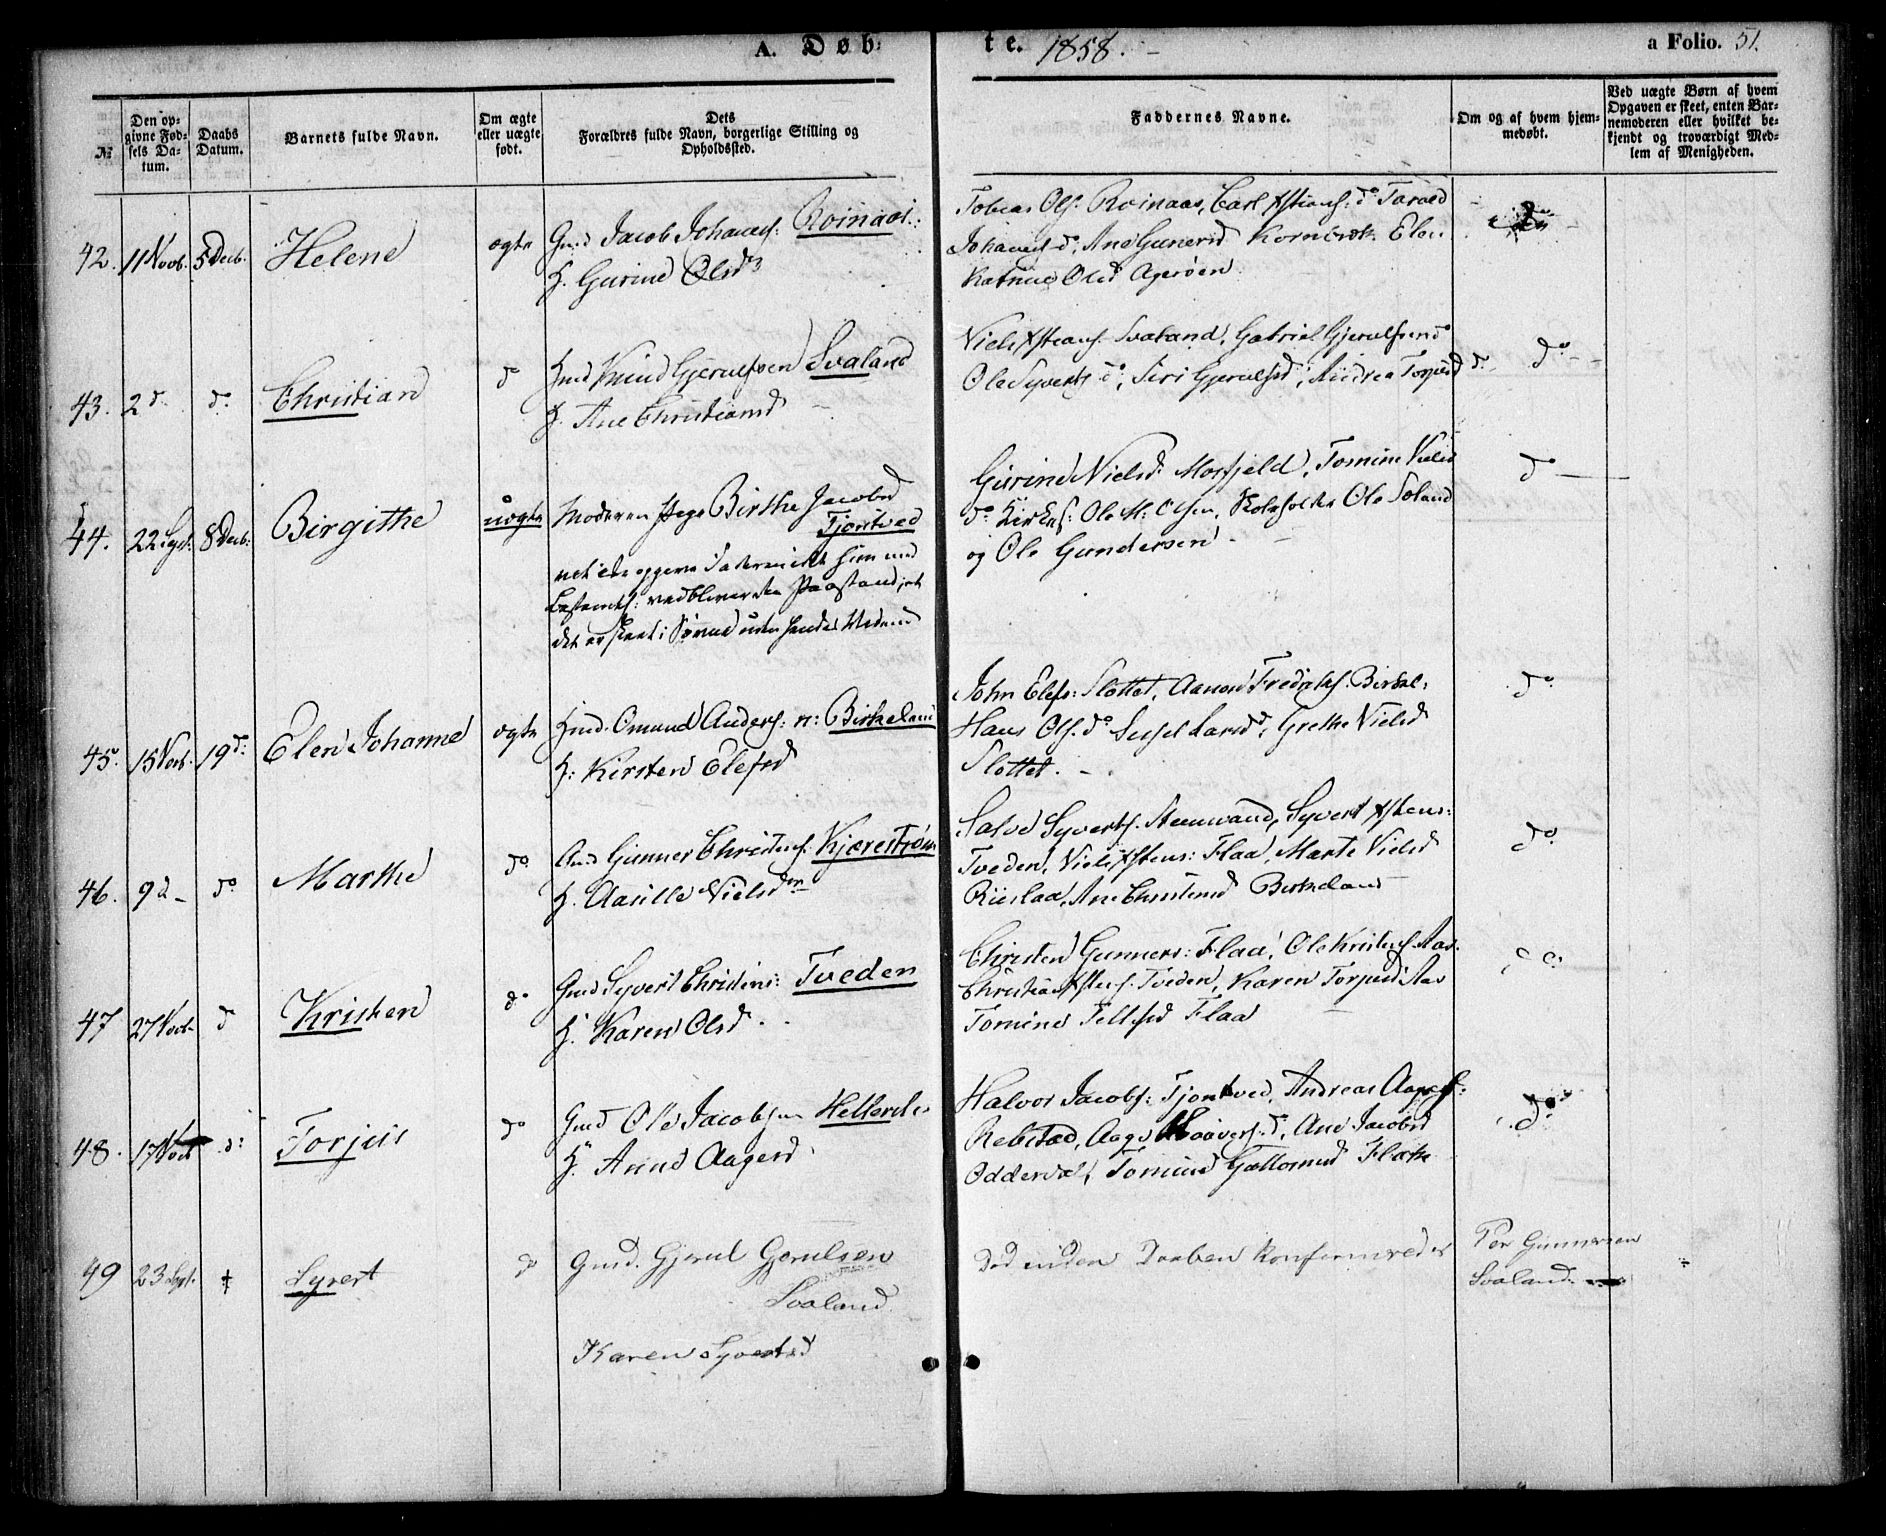 A. Døb-
te. 1858. -
a Folio. 51.
№
Den op-
givne Fød-
sels Da-
tum.
Daabs
Datum.
Barnets fulde Navn.
Om ægte
eller uægte
født.
Dets
Forældres fulde Navn, borgerlige Stilling og
Opholdssted.
Faddernes Navne.
Om og af hvem hjem-
medøbt.
Ved uægte Børn af hvem
Opgaven er skeet, enten Bar-
nemoderen eller hvilket be-
kjendt og troværdigt Med-
lem af Menigheden.
42. 11 Novb. 5 Decb. Helene ægte
Gmd Jacob Johanes: Roinaas.
H. Gurine Olsd
Tobias Ols. Roinaas, Carl Xstians: do Tarald
Johanes do, Ane Gunersd Kornbrek Elen
Katrine Olsd Agerøen
43. 2 d. d. Christian do
Gmd Knud Gjerulfsen Svaland
H. Ane Christiansd
Niels Xstians. Svaland, Gabriel Gjerulfsen do
Ole Syverts do, Siri Gjerulfsd, Andrea Torjusd do
do
44. 22 Sept. 8 Decb: Birgithe uægte
Moderen Pige Birthe Jacobsd
Tjøntved
Gurine Nielsd Mosfjeld, Tomine Nielsd
do Kirkes: Ole M: Olsen, Ole Soland
og Ole Gundersen -
do
45. 15 Novb. 19 d: Elen Johanne ægte
Gmd. Omund Anders: n: Birkeland
H: Kirsten Elefsd
John Elefs: Slottet, Aanon Fredriks. Birkel:
Hans Ols. do Sissel Larsd, Grethe Nielsd
Slottet. -
do
46. 9 d - do Marthe do
Gmd Gunner Christens. Kjærestrøm
H. Aasille Nielsd
Salve Syverts. Steenvand, Syvert Xstens:
Tveden, Niels Xstens: Flaa, Marte Nielsd
Riislaa, Ane Christensd Birkeland
do
47 27 Novb. d Kristen do
Gmd Syvert Christens: Tveden
H. Karen Olsd.
Christen Gunners: Flaa, Ole Kristens. Aas.
Christian Xstens. Tveden, Karen Torjusd Aas
Tomine Tellefsd Flaa
48. 17 Novb d: Torjus do
Gmd Ole Jacobsen
H. Anne Aagesd
Halvor Jacobs: Tjøntved, Andreas Aages:
Rebstad, Aage do, Ane Jacobsd
Oddersdal, Tomine Flatte
do
49 23 Sept. † Syvert do
Gmd. Gjerul Gjerulsen
Svaland
Karen Syvertsd
Død inden Daaben konfirmeredes
Per Gunnersen
Svaland